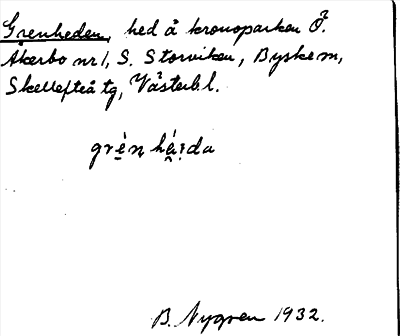 Grenheden, hed å kronoparken Ö.
Åkerbo nr 1, S. Storviken, Byske sn,
Skellefteå tg, Västerb. l.
grén hérda
B. Nygren 1932.